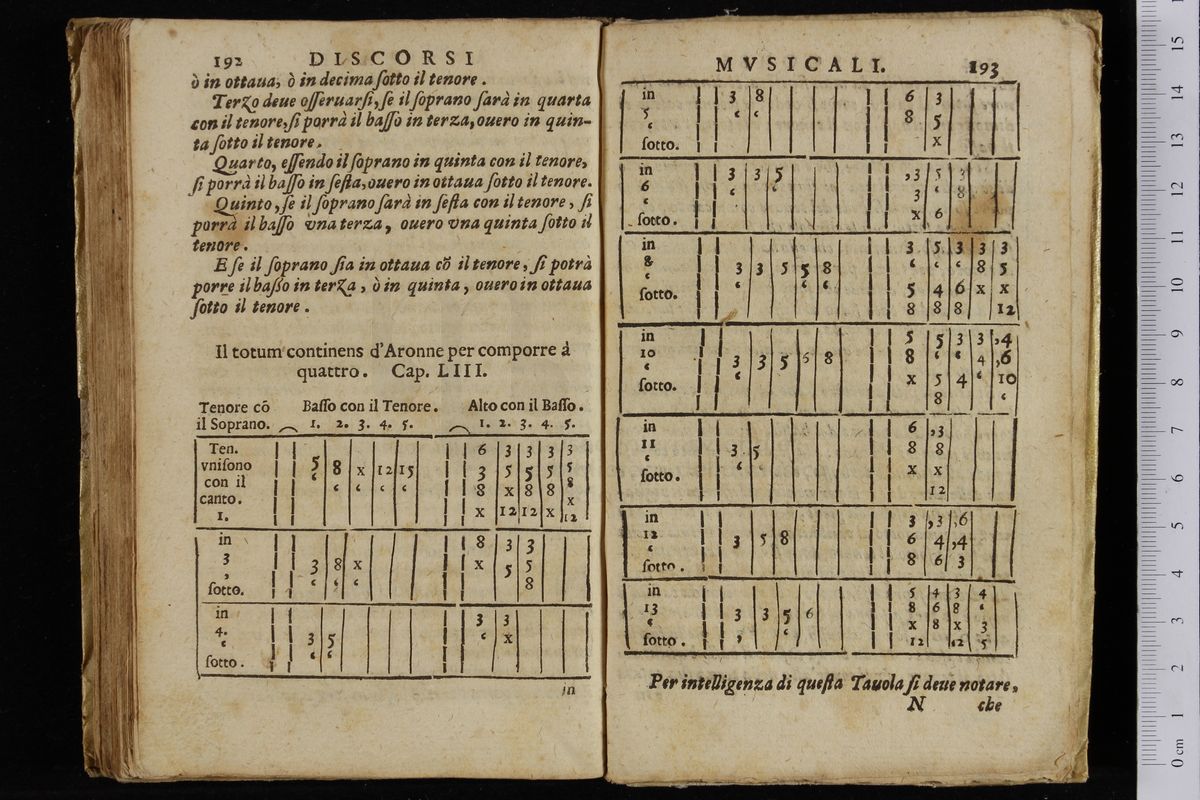 192 DISCORSI
ò in ottaua, ò in decima ſotto il tenore.
Terzo deue oſſeruarſi, ſe il ſoprano ſarà in quarta
con il tenore, ſi porrà il baſſo in terza, ouero in quin-
ta ſotto il tenore.
Quarto, eſſendo il ſoprano in quinta con il tenore,
ſi porrà il baſſo in ſeſta, ouero in ottaua ſotto il tenore.
Quinto, ſe il ſoprano ſarà in ſeſta con il tenore, ſi
porrà il baſſo vna terza, ouero vna quinta ſotto il
tenore.
E ſe il ſoprano ſia in ottaua cõ il tenore, ſi potrà
porre il baſſo in terza, ò in quinta, ouero in ottaua
ſotto il tenore.
Il totum continens d'Aronne per comporre à
quattro. Cap. LIII.
Tenore cõ Baſſo con il Tenore. Alto con il Baſſo.
il Soprano. 1. 2. 3. 4. 5. 1. 2. 3. 4. 5.
Ten. 6 3 3 3 3
vniſono 5 8 x 12 15 3 5 5 5 5
con il c c c c c 8 x 8 8 8
canto. x 12 12 x x
1. 12
in 8 3 3
3 3 8 x x 5 5
, c c c 8
ſotto.
in 3 3
4. 3 5 c x
c c c
ſotto.
in
MVSICALI. 193
in 3 8 6 3
5 c c 8 5
c x
ſotto.
in 3 3 5 ,3 5 3
6 c c 3 c 8
c x 6
ſotto.
in 3 5 3 3 3
8 3 3 5 5 8 c c c 8 5
c c c c 5 4 6 x x
ſotto. 8 8 8 12
in 5 5 3 3 ,4
10 3 3 5 6 8 8 c c 4 ,6
c c x 5 4 c 10
ſotto. 8 c
in 6 ,3
11 3 5 8 8
c c x x
ſotto. 12
in 3 ,3 ,6
12 3 5 8 6 4 ,4
c 8 6 3
ſotto.
in 5 4 3 4
13 3 3 5 6 8 6 8 c
c , c x 8 x 3
ſotto. 12 12 5
Per intelligenza di queſta Tauola ſi deue notare,
N che